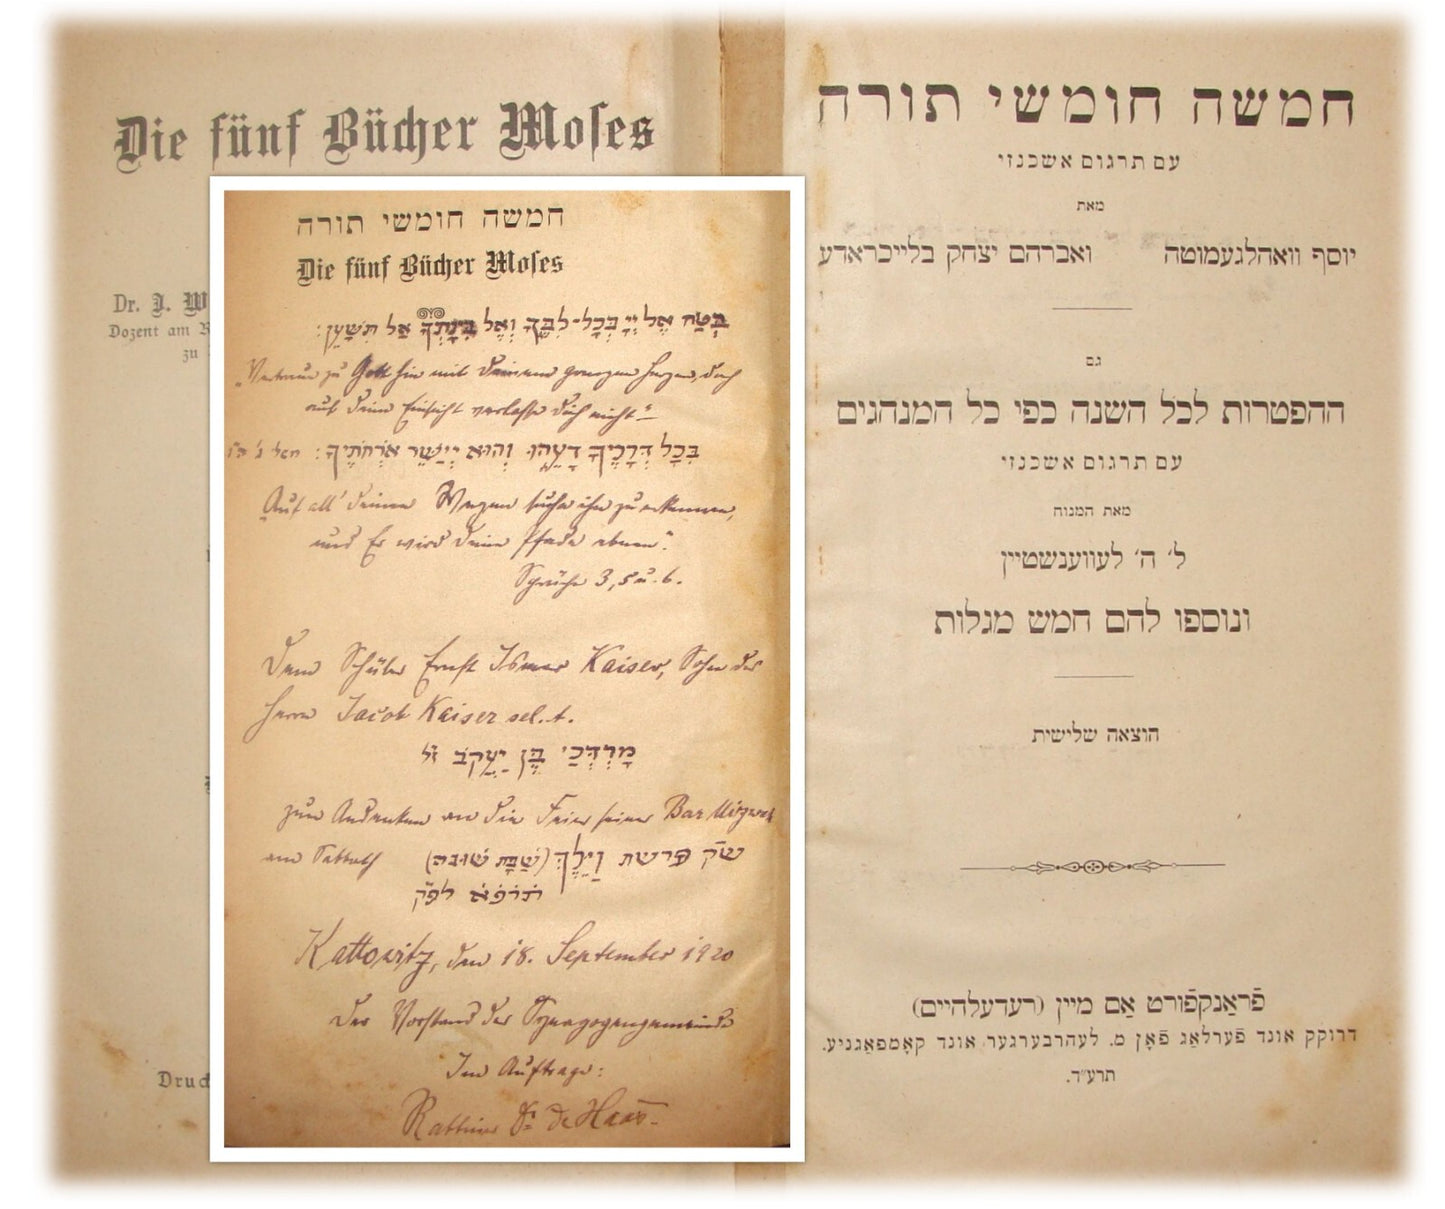 Die fünf Bücher Moses
Dr. J. W
Dozent am R
zu
Druck
חמשה חומשי תורה
Die fünf Bücher Moses
בְּטַח אֶל יְיָ בְּכָל־לִבֶּךָ וְאֶל בִּינָתְךָ אַל תִּשָּׁעֵן:
„Vertraue zu Gott hin mit deinem ganzen Herzen, doch
auf deine Einsicht verlasse dich nicht“
בְּכָל דְּרָכֶיךָ דָעֵהוּ וְהוּא יְיַשֵּׁר אֹרְחֹתֶיךָ:
„Auf all' deinen Wegen suche ihn zu erkennen,
und Er wird deine Pfade ebnen“.
Sprüche 3, 5 u. 6.
Dem Schüler Ernst Ismar Kaiser, Sohn des
Herrn Jacob Kaiser sel. A.
מָרְדְּכַי בֶּן יַעֲקֹב ז״ל
zum Andenken an die Feier seiner Bar Mizwah
am Sabbath ש״ק פרשת וַיֵּלֶךְ (שַׁבָּת שׁוּבה)
תרפא לפ״ק
Kattowitz, den 18. September 1920
Der Vorstand der Synagogengemeinde
Im Auftrage:
Rabbiner Dr. de Haas
חמשה חומשי תורה
עם תרגום אשכנזי
מאת
יוסף וואהלגעמוטה ואברהם יצחק בלייכראדע
גם
ההפטרות לכל השנה כפי כל המנהגים
עם תרגום אשכנזי
מאת המנוח
ל׳ ה׳ לעווענשטיין
ונוספו להם חמש מגלות
הוצאה שלישית
פֿראַנקפֿורט אַם מיין (רעדעלהיים)
דרוקק אונד פֿערלאַג פֿאָן מ. לעהרבערגער אונד קאָמפּאַגניע.
תרע״ד.